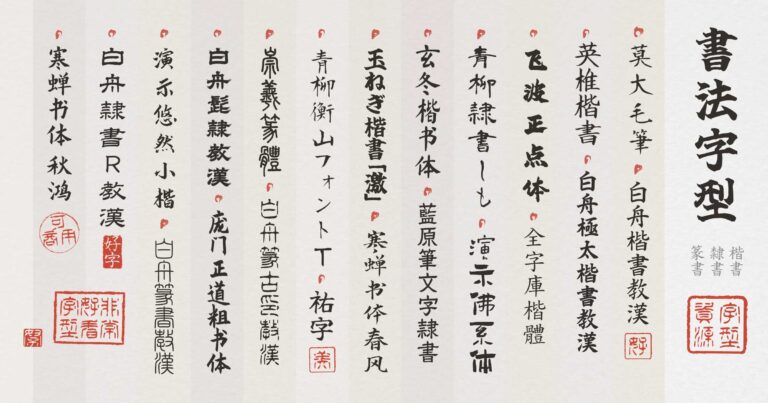 書法字型
楷書
隸書
篆書
字型
資源
莫大毛筆
白舟楷書教漢
好
英椎楷書
白舟極太楷書教漢
飞波正点体
全字庫楷體
青柳隷書しも
演示佛系体
玄冬楷书体
藍原筆文字隷書
玉ねぎ楷書「激」
寒蝉书体春风
青柳衡山フォントT
祐字
美
崇羲篆體
白舟篆古印教漢
白舟髭隷教漢
庞门正道粗书体
演示悠然小楷
白舟篆書教漢
白舟隷書R教漢
好字
寒蝉书体秋鸿
可商用
非常
好看
字型